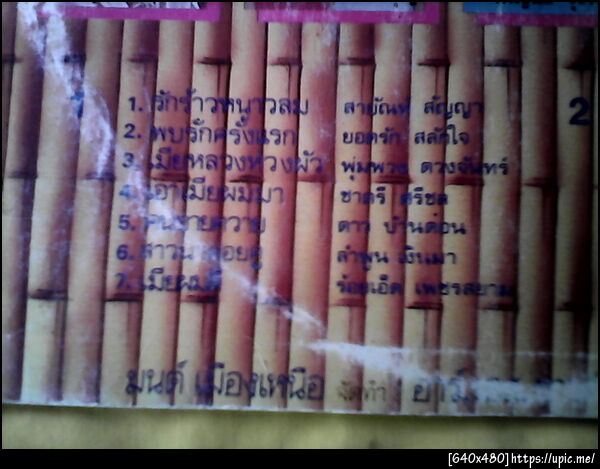 1. รักร้าวหนาวลม สายัณห์ สัญญา 2
2. พบรักครั้งแรก ยอดรัก สลักใจ
3. เมียหลวงหวงผัว พุ่มพวง ดวงจันทร์
4. เอาเมียผมมา ชาตรี ศรีชล
5. คนขายควาย ดาว บ้านดอน
6. สาวนาคอยคู่ ลำพูน เงินมา
7. เมียผมดี ร้อยเอ็ด เพชรสยาม
มนต์ เมืองเหนือ จัดทำ
[640x480]https://upic.me/